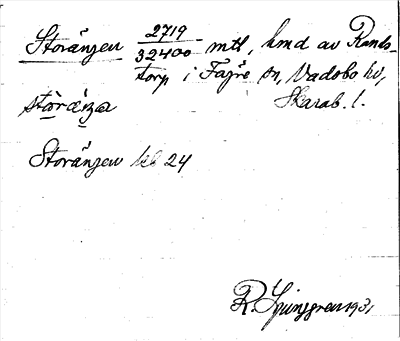 Storängen 2719/32400 mtl, hmd av Rands-
torp i Fägre sn, Vadsbo hd,
Skarab. l.
stòräŋa
Storängen hl 24
R. Ljunggren 1931